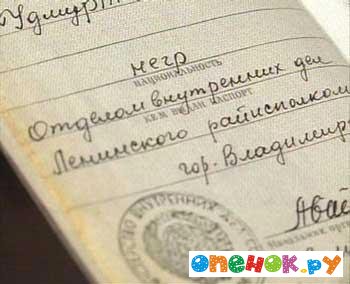 Удмурт
негр
НАЦИОНАЛЬНОСТЬ
Отделом внутренних дел
КЕМ ВЫДАН ПАСПОРТ
Ленинского райисполком
гор. Владимир
Начальник орг
опенок.ру